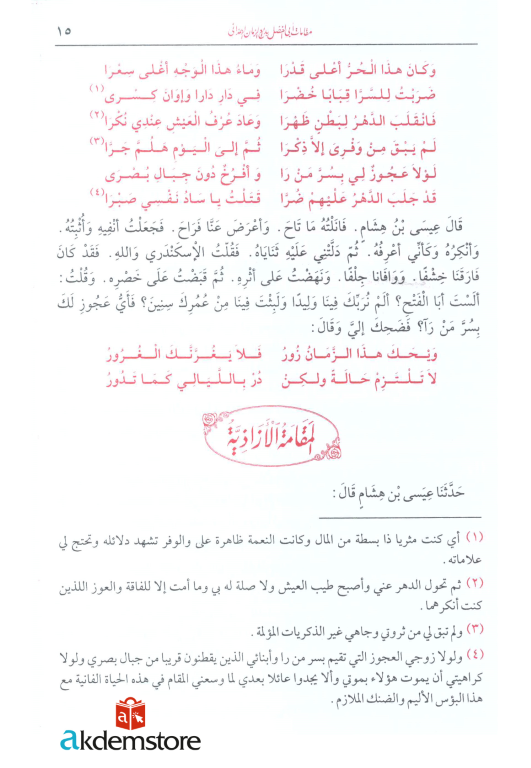 مقامات أبي الفضل بديع الزمان الهمذاني ١٥
وَكَانَ هذا الْحُرُّ أعْلى قَدْرَا وَماءُ هذا الْوَجْهِ أغْلى سِعْرا
ضَرَبْتُ لِلسَّرَّا قِبَابًا خُضْرَا فـي دارِ دارا وإوانَ كِـسْـرى(١)
فَانْقَلَبَ الدَّهْرُ لِبَطْنٍ ظَهْرَا وَعَادَ عُرْفُ الْعَيْشِ عِنْدِي نُكْرا(٢)
لَمْ يَبْقَ مِنْ وَفْرِى إلاَّ ذِكْرَا ثُـمَّ إلى الْيَـوْمِ هَلُـمَّ جَـرَّا(٣)
لَوْلاَ عَجُوزٌ لِي بِسُرَّ مَنْ رَا وَ أفْرُخٌ دُونَ جِبَالِ بُصْرَى
قَدْ جَلَبَ الدَّهْرُ عَلَيْهِمْ ضُرَّا قَتَلْتُ يا سَادُ نَفْسِي صَبْرَا(٤)
قَالَ عِيسَى بْنُ هِشَامٍ. فَانَلْتُهُ مَا تَاحَ. وَأعْرَضَ عَنَّا فَرَاحَ. فَجَعَلْتُ أنْفِيهِ وَأُثْبِتُهُ.
وَأنْكِرُهُ وَكَأنِّي أعْرِفُهُ. ثُمَّ دَلَّتْنِي عَلَيْهِ ثَنَايَاهُ. فَقُلْتُ الإسْكَنْدَرِي وَاللهِ. فَقَدْ كَانَ
فَارَقَنَا خِشْفًا. وَوَافَانا جِلْفًا. وَنَهَضْتُ عَلى أثْرِهِ. ثُمَّ قَبَضْتُ عَلى خَصْرِهِ. وَقُلْتُ:
ألَسْتَ أبَا الْفَتْحِ؟ ألَمْ نُرَبِّكَ فِينَا وَلِيدًا وَلَبِثْتَ فِينَا مِنْ عُمُرِكَ سِنِينَ؟ فَأيُّ عَجُوزٍ لَكَ
بِسُرَّ مَنْ رَآ؟ فَضَحِكَ إليَّ وَقَالَ:
وَيْـحَـكَ هـذا الـزَّمَانُ زُورُ فَـلاَ يَـغُـرَّنْـكَ الْـغُـرُورُ
لاَ تَـلْـتَـزِمْ حَـالَـةً ولكِـنْ دُرْ بِـاللَّـيَـالِي كَـمَا تَـدُورُ
المَقَامَةُ الْأَزَاذِيَّةُ
حَدَّثَنَا عِيَسى بْن هِشَامٍ قَالَ:
(١) أي كنت مثريا ذا بسطة من المال وكانت النعمة ظاهرة على والوفر تشهد دلائله وتحتج لي
علاماته.
(٢) ثم تحول الدهر عني وأصبح طيب العيش ولا صلة له بي وما أمت إلا للفاقة والعوز اللذين
كنت أنكرهما.
(٣) ولم تبق لي من ثروتي وجاهي غير الذكريات المؤلمة.
(٤) ولولا زوجي العجوز التي تقيم بسر من را وأبنائي الذين يقطنون قريبا من جبال بصري ولولا
كراهيتي أن يموت هؤلاء بموتي وألا يجدوا عائلا بعدي لما وسعني المقام في هذه الحياة الفانية مع
هذا البؤس الأليم والضنك الملازم.
akdemstore